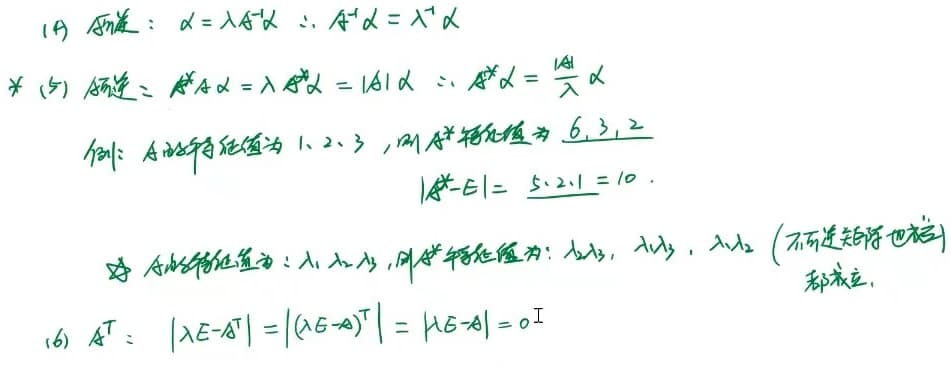 (4) A可逆：α=λA⁻¹α ∴ A⁻¹α=λ⁻¹α
* (5) A可逆：A*Aα=λA*α=|A|α ∴ A*α=|A|/λ α
例：A的特征值为 1、2、3，则A*特征值为 6,3,2
|A*-E|= 5·2·1=10.
☆ A的特征值为：λ₁ λ₂ λ₃，则A*特征值为：λ₂λ₃，λ₁λ₃，λ₁λ₂ (不可逆矩阵也成立)
都成立.
(6) Aᵀ：|λE-Aᵀ|=|(λE-A)ᵀ|=|λE-A|=0